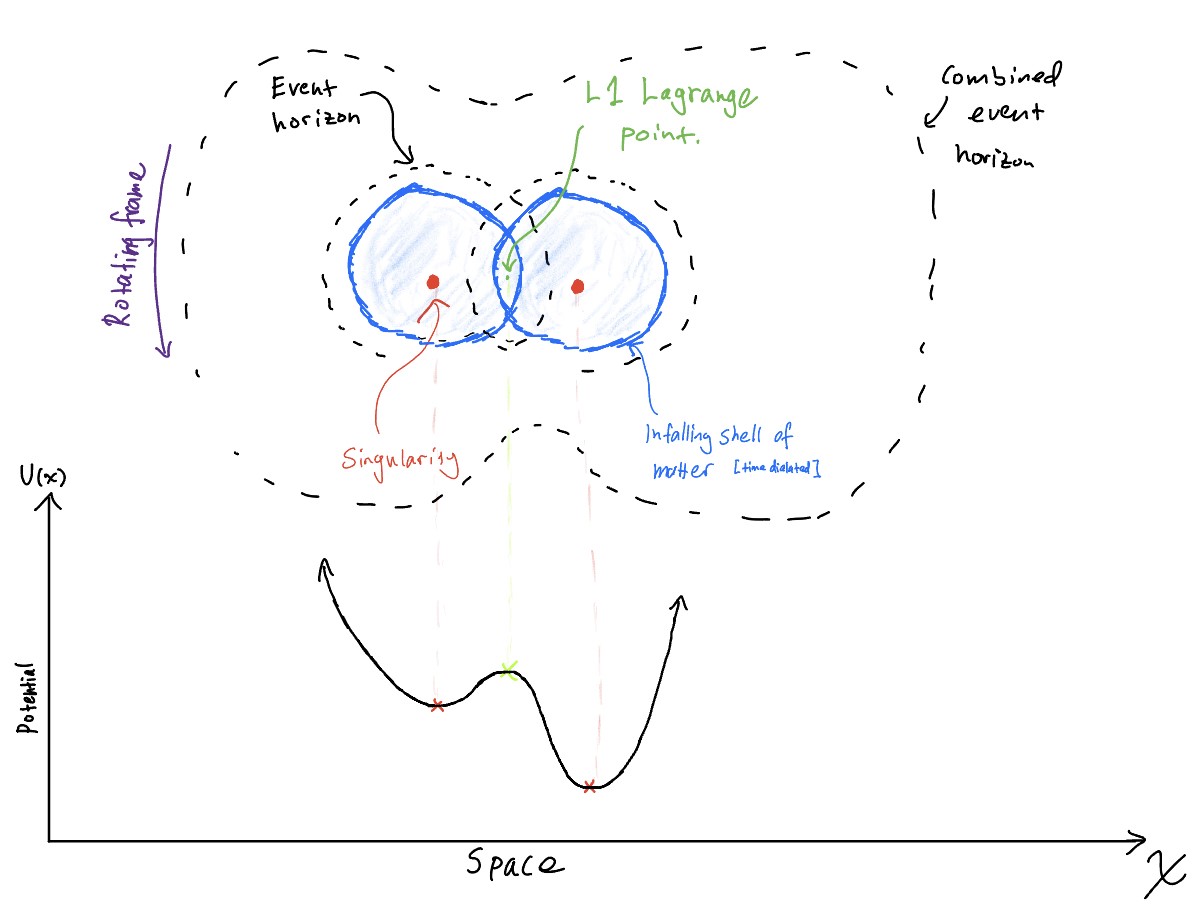 Event
horizon
L1 Lagrange
point.
Combined
event
horizon
Rotating frame
Singularity
Infalling shell of
matter [time dialated]
U(x)
Potential
Space
x